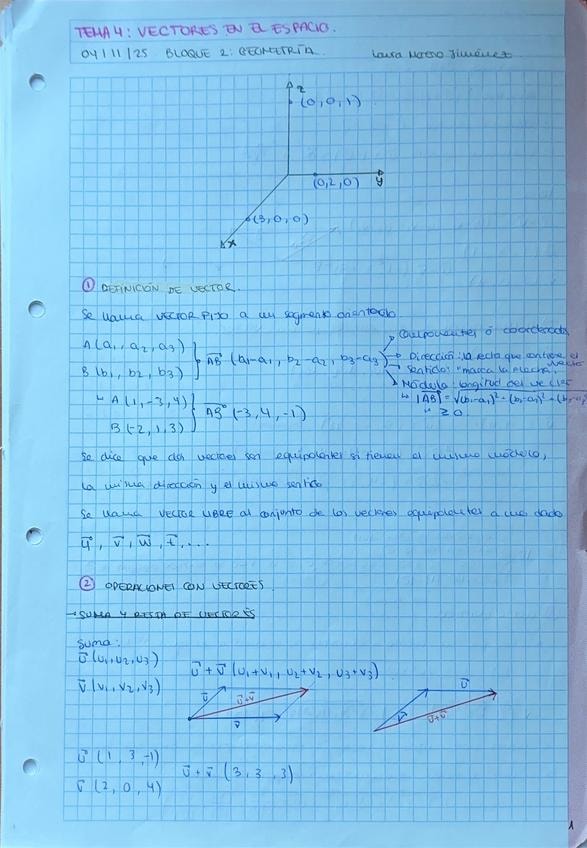 TEMA 4: VECTORES EN EL ESPACIO.
04/11/25 BLOQUE 2: GEOMETRÍA. Laura Moreno Jiménez
z
(0,0,1)
(0,2,0) y
(3,0,0)
x
① DEFINICIÓN DE VECTOR.
Se llama VECTOR FIJO a un segmento orientado
Componentes ó coordenadas
A(a₁, a₂, a₃)
AB (b₁-a₁, b₂-a₂, b₃-a₃)
Dirección: la recta que contiene el vector
B(b₁, b₂, b₃)
Sentido: "marca la flecha"
Módulo: longitud del vector
↳ A(1,-3,4)
AB (-3,4,-1)
↳ |AB| = √(b₁-a₁)²+(b₂-a₂)²+(b₃-a₃)²
B(-2,1,3)
≥ 0
Se dice que dos vectores son equipolentes si tienen el mismo módulo,
la misma dirección y el mismo sentido
Se llama VECTOR LIBRE al conjunto de los vectores equipolentes a uno dado
u⃗, v⃗, w⃗, t⃗, ...
② OPERACIONES CON VECTORES.
→ SUMA Y RESTA DE VECTORES
Suma:
u⃗ (u₁, u₂, u₃)
u⃗ + v⃗ (u₁+v₁, u₂+v₂, u₃+v₃)
v⃗ (v₁, v₂, v₃)
u⃗ u⃗+v⃗ v⃗
u⃗ v⃗ u⃗+v⃗
u⃗ (1, 3, -1)
u⃗ + v⃗ (3, 3, 3)
v⃗ (2, 0, 4)
1